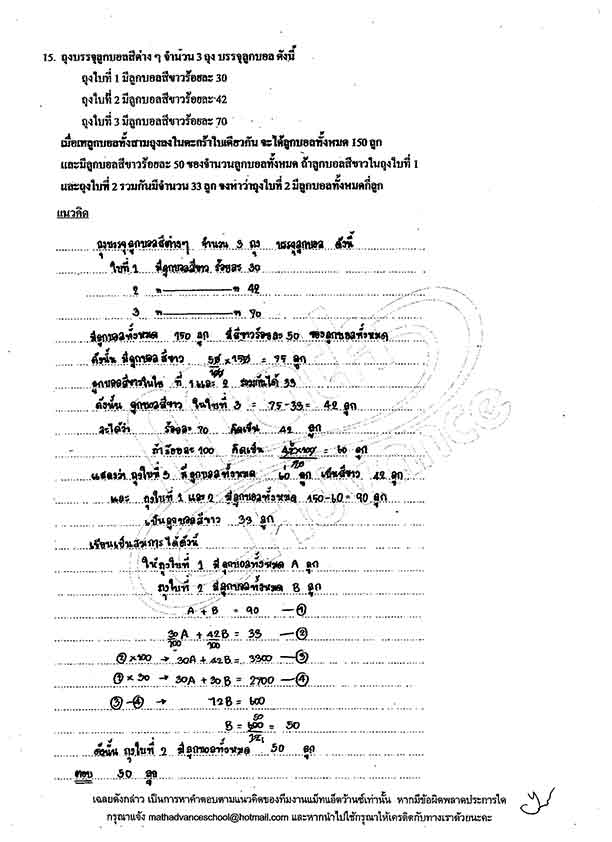 15. ถุงบรรจุลูกบอลสีต่าง ๆ จำนวน 3 ถุง บรรจุลูกบอล ดังนี้
ถุงใบที่ 1 มีลูกบอลสีขาวร้อยละ 30
ถุงใบที่ 2 มีลูกบอลสีขาวร้อยละ 42
ถุงใบที่ 3 มีลูกบอลสีขาวร้อยละ 70
เมื่อเทลูกบอลทั้งสามถุงลงในตะกร้าใบเดียวกัน จะได้ลูกบอลทั้งหมด 150 ลูก
และมีลูกบอลสีขาวร้อยละ 50 ของจำนวนลูกบอลทั้งหมด ถ้าลูกบอลสีขาวในถุงใบที่ 1
และถุงใบที่ 2 รวมกันมีจำนวน 33 ลูก จงหาว่าถุงใบที่ 2 มีลูกบอลทั้งหมดกี่ลูก
แนวคิด
ถุงบรรจุลูกบอลสีต่างๆ จำนวน 3 ถุง บรรจุลูกบอล ดังนี้
ใบที่ 1 มีลูกบอลสีขาว ร้อยละ 30
2 " ——— " 42
3 " ——— " 70
มีลูกบอลทั้งหมด 150 ลูก มีสีขาวร้อยละ 50 ของลูกบอลทั้งหมด
ดังนั้น มีลูกบอล สีขาว 50/100 × 150 = 75 ลูก
ลูกบอลสีขาวในใบ ที่ 1 และ 2 รวมกันได้ 33
ดังนั้น ลูกบอลสีขาว ในใบที่ 3 = 75-33 = 42 ลูก
จะได้ว่า ร้อยละ 70 คิดเป็น 42 ลูก
ถ้าร้อยละ 100 คิดเป็น 42×100/70 = 60 ลูก
แสดงว่า ถุงใบที่ 3 มีลูกบอลทั้งหมด 60 ลูก เป็นสีขาว 42 ลูก
และ ถุงใบที่ 1 และ 2 มีลูกบอลทั้งหมด 150-60 = 90 ลูก
เป็นลูกบอลสีขาว 33 ลูก
เขียนเป็นสมการ ได้ดังนี้
ให้ถุงใบที่ 1 มีลูกบอลทั้งหมด A ลูก
ถุงใบที่ 2 มีลูกบอลทั้งหมด B ลูก
A + B = 90 —①
30/100 A + 42/100 B = 33 —②
②×100 → 30A + 42B = 3300 —③
①×30 → 30A + 30B = 2700 —④
③-④ → 12B = 600
B = 600/12 = 50
ดังนั้น ถุงใบที่ 2 มีลูกบอลทั้งหมด 50 ลูก
ตอบ 50 ลูก
เฉลยดังกล่าว เป็นการหาคำตอบตามแนวคิดของทีมงานแม็ทแอ็ดว้านซ์เท่านั้น หากมีข้อผิดพลาดประการใด
กรุณาแจ้ง mathadvanceschool@hotmail.com และหากนำไปใช้กรุณาให้เครดิตกับทางเราด้วยนะคะ